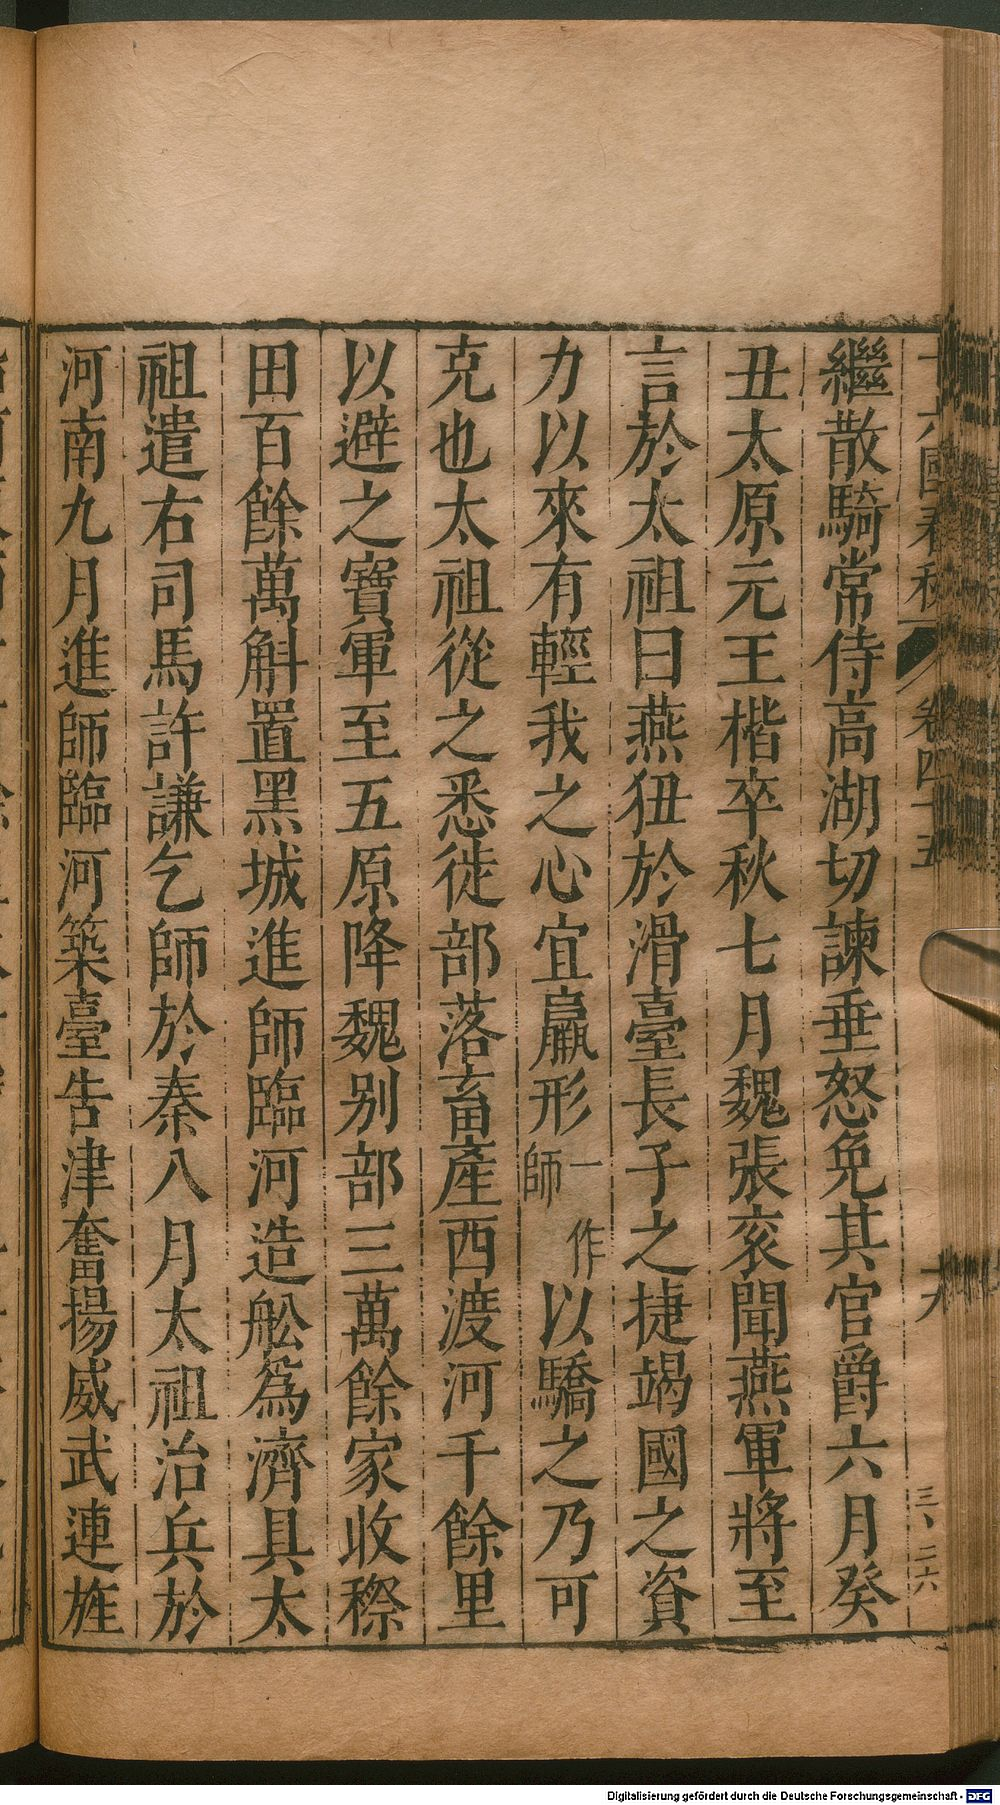 繼散騎常侍高湖切諫垂怒免其官爵六月癸
丑太原元王楷卒秋七月魏張衮聞燕軍將至
言於太祖曰燕狃於滑臺長子之捷竭國之資
力以來有輕我之心宜羸形一作師以驕之乃可
克也太祖從之悉徙部落畜產西渡河千餘里
以避之寶軍至五原降魏别部三萬餘家收穄
田百餘萬斛置黑城進師臨河造舩爲濟具太
祖遣右司馬許謙乞師於秦八月太祖治兵於
河南九月進師臨河築臺告津奮揚威武連旌
十六國春秋 卷四十五
三、二六
Digitalisierung gefördert durch die Deutsche Forschungsgemeinschaft - DFG